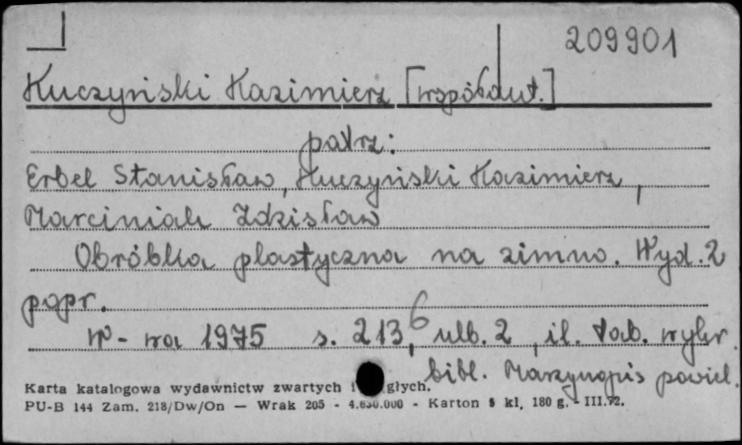 209901
Kuczyński Kazimierz [współaut.]
patrz:
Erbel Stanisław, Kuczyński Kazimierz,
Marciniak Zdzisław
Obróbka plastyczna na zimno. Wyd. 2
popr.
W-wa 1975 s. 213, 6 ulb. 2, il. tab. wykr.
bibl. Maszynopis powiel.
Karta katalogowa wydawnictw zwartych i głych.
PU-B 144 Zam. 218/Dw/On — Wrak 205 - 4.650.000 - Karton 5 kl, 180 g. - III.72.